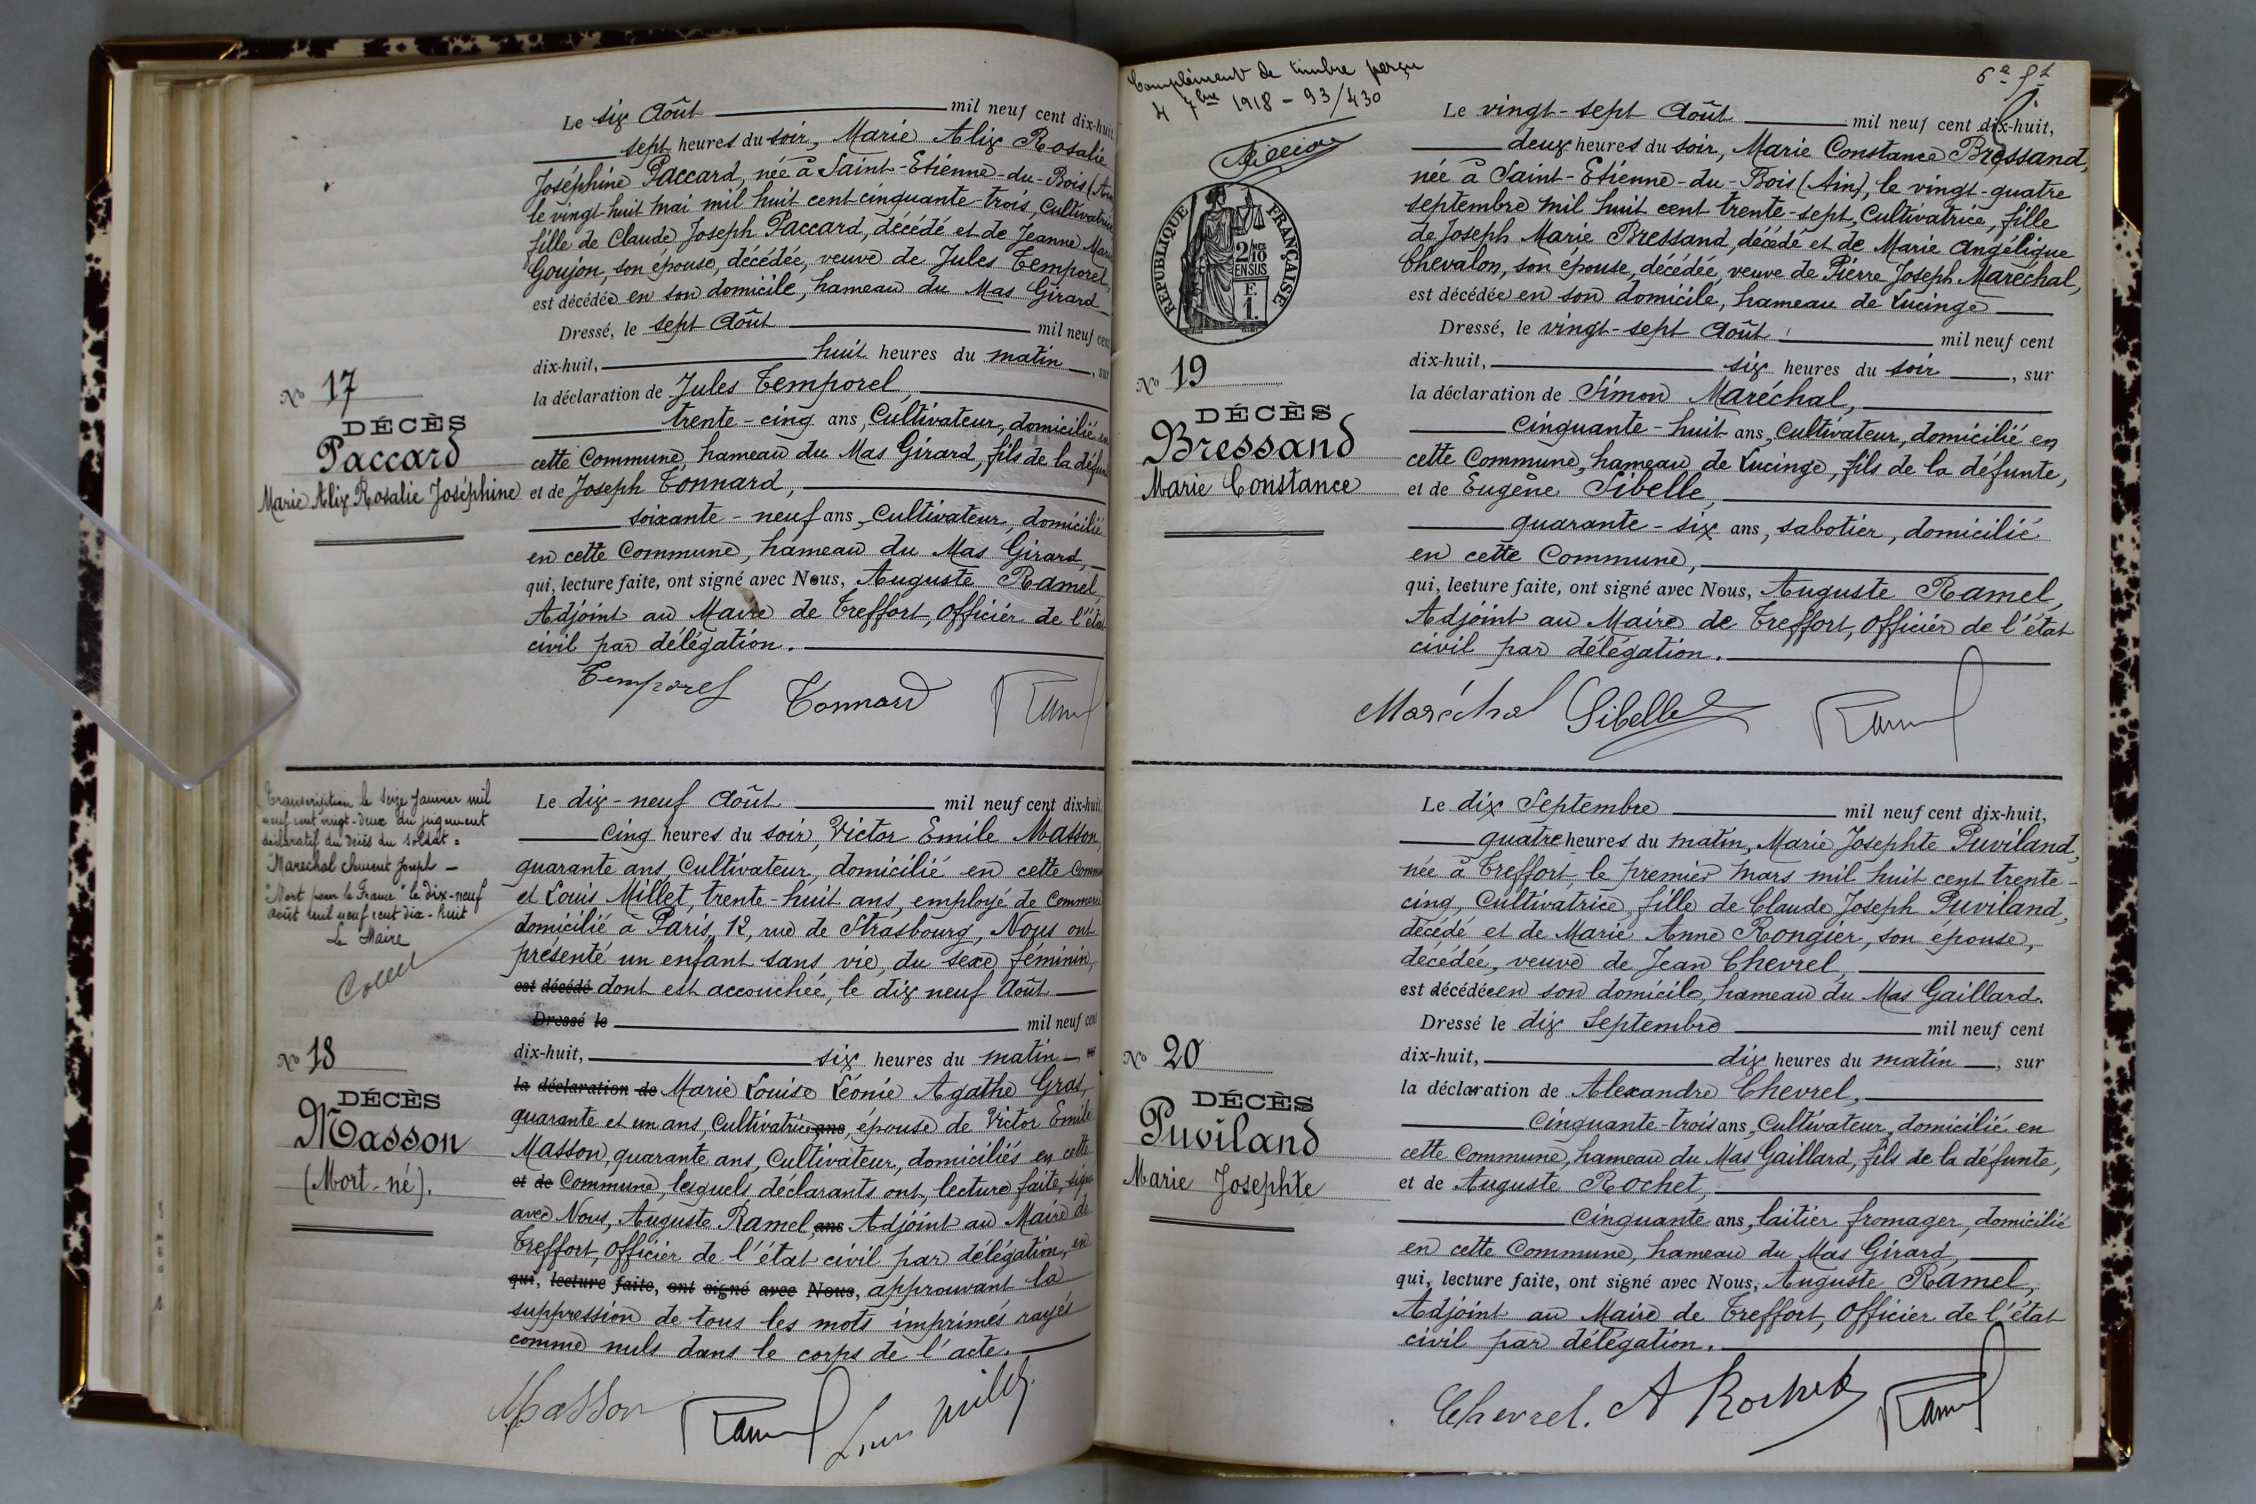 Le six Août mil neuf cent dix-huit
sept heures du soir, Marie Alix Rosalie
Joséphine Paccard, née à Saint-Etienne-du-Bois (Ain
le vingt-huit mai mil huit cent cinquante-trois, Cultivatrice
fille de Claude Joseph Paccard, décédé et de Jeanne Marie
Goujon, son épouse, décédée, veuve de Jules Temporel,
est décédée en son domicile, hameau du Mas Girard
Dressé, le sept Août mil neuf cent
dix-huit, huit heures du matin, sur
la déclaration de Jules Temporel
trente-cinq ans, Cultivateur, domicilié en
cette Commune, hameau du Mas Girard, fils de la défunte
et de Joseph Tonnard,
soixante-neuf ans, Cultivateur, domicilié
en cette Commune, hameau du Mas Girard,
qui, lecture faite, ont signé avec Nous, Auguste Ramel,
Adjoint au Maire de Treffort, Officier de l'état
civil par délégation.
Temporel Tonnard Ramel
No 17
DÉCÈS
Paccard
Marie Alix Rosalie Joséphine
Transcription le seize Janvier mil
neuf cent vingt-deux du jugement
déclaratif du décès du soldat =
Maréchal Clément Joseph —
"Mort pour la France" le dix-neuf
août mil neuf cent dix-huit
Le Maire
No 18
DÉCÈS
Masson
(Mort-né).
Le dix-neuf Août mil neuf cent dix-huit
cinq heures du soir, Victor Emile Masson,
quarante ans, Cultivateur, domicilié en cette Commune
et Louis Millet, trente-huit ans, employé de Commerce
domicilié à Paris, 12, rue de Strasbourg, Nous ont
présenté un enfant sans vie, du sexe féminin,
est décédé dont est accouchée, le dix neuf Août
Dressé le mil neuf cent
dix-huit, six heures du matin
la déclaration de Marie Louise Léonie Agathe Gras,
quarante et un ans, Cultivatrice ans, épouse de Victor Emile
Masson, quarante ans, Cultivateur, domiciliés en cette
et de Commune, lesquels déclarants ont, lecture faite, signé
avec Nous, Auguste Ramel, ans Adjoint au Maire de
Treffort, Officier de l'état civil par délégation, en
qui, lecture faite, ont signé avec Nous, approuvant la
suppression de tous les mots imprimés rayés
comme nuls dans le corps de l'acte.
Masson Ramel Louis Millet
Complément de timbre perçu
4 7bre 1918 - 93/430
RÉPUBLIQUE FRANÇAISE
2/10
EN SUS
F.
1.
6e ft
No 19
DÉCÈS
Bressand
Marie Constance
Le vingt-sept Août mil neuf cent dix-huit,
deux heures du soir, Marie Constance Bressand,
née à Saint-Etienne-du-Bois (Ain), le vingt-quatre
septembre mil huit cent trente-sept, Cultivatrice, fille
de Joseph Marie Bressand, décédé et de Marie Angélique
Chevalon, son épouse, décédée, veuve de Pierre Joseph Maréchal,
est décédée en son domicile, hameau de Lucinge
Dressé, le vingt-sept Août mil neuf cent
dix-huit, six heures du soir, sur
la déclaration de Simon Maréchal,
Cinquante-huit ans, Cultivateur, domicilié en
cette Commune, hameau de Lucinge, fils de la défunte,
et de Eugène Sibelle,
quarante-six ans, sabotier, domicilié
en cette Commune,
qui, lecture faite, ont signé avec Nous, Auguste Ramel,
Adjoint au Maire de Treffort, Officier de l'état
civil par délégation.
Maréchal Sibelle Ramel
No 20
DÉCÈS
Puviland
Marie Josephte
Le dix Septembre mil neuf cent dix-huit,
quatre heures du matin, Marie Josephte Puviland,
née à Treffort, le premier mars mil huit cent trente-
cinq, Cultivatrice, fille de Claude Joseph Puviland,
décédé et de Marie Anne Rongier, son épouse,
décédée, veuve de Jean Chevrel,
est décédée en son domicile, hameau du Mas Gaillard.
Dressé le dix Septembre mil neuf cent
dix-huit, dix heures du matin, sur
la déclaration de Alexandre Chevrel,
Cinquante-trois ans, Cultivateur, domicilié en
cette Commune, hameau du Mas Gaillard, fils de la défunte,
et de Auguste Rochet,
Cinquante ans, laitier fromager, domicilié
en cette Commune, hameau du Mas Girard,
qui, lecture faite, ont signé avec Nous, Auguste Ramel,
Adjoint au Maire de Treffort, Officier de l'état
civil par délégation.
Chevrel. A Rochet Ramel